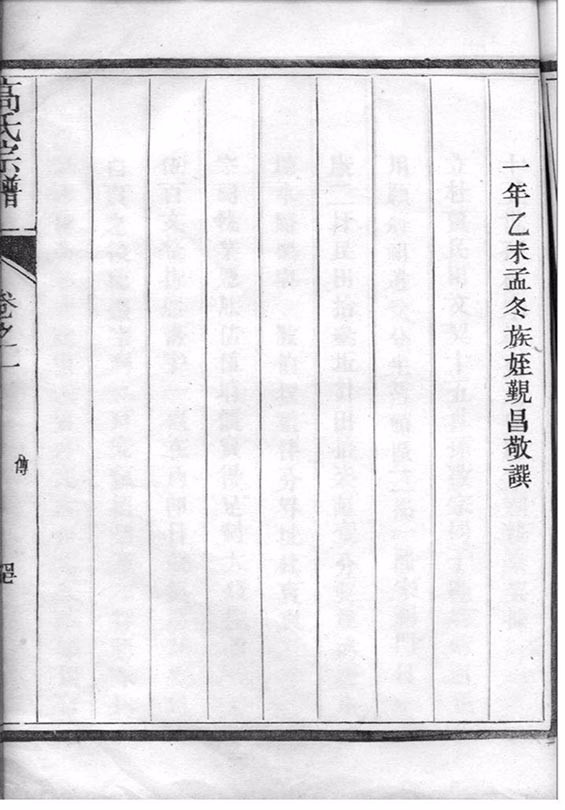 一年乙未孟冬族姪覲昌敬譔
高氏宗譜
卷之二
傳